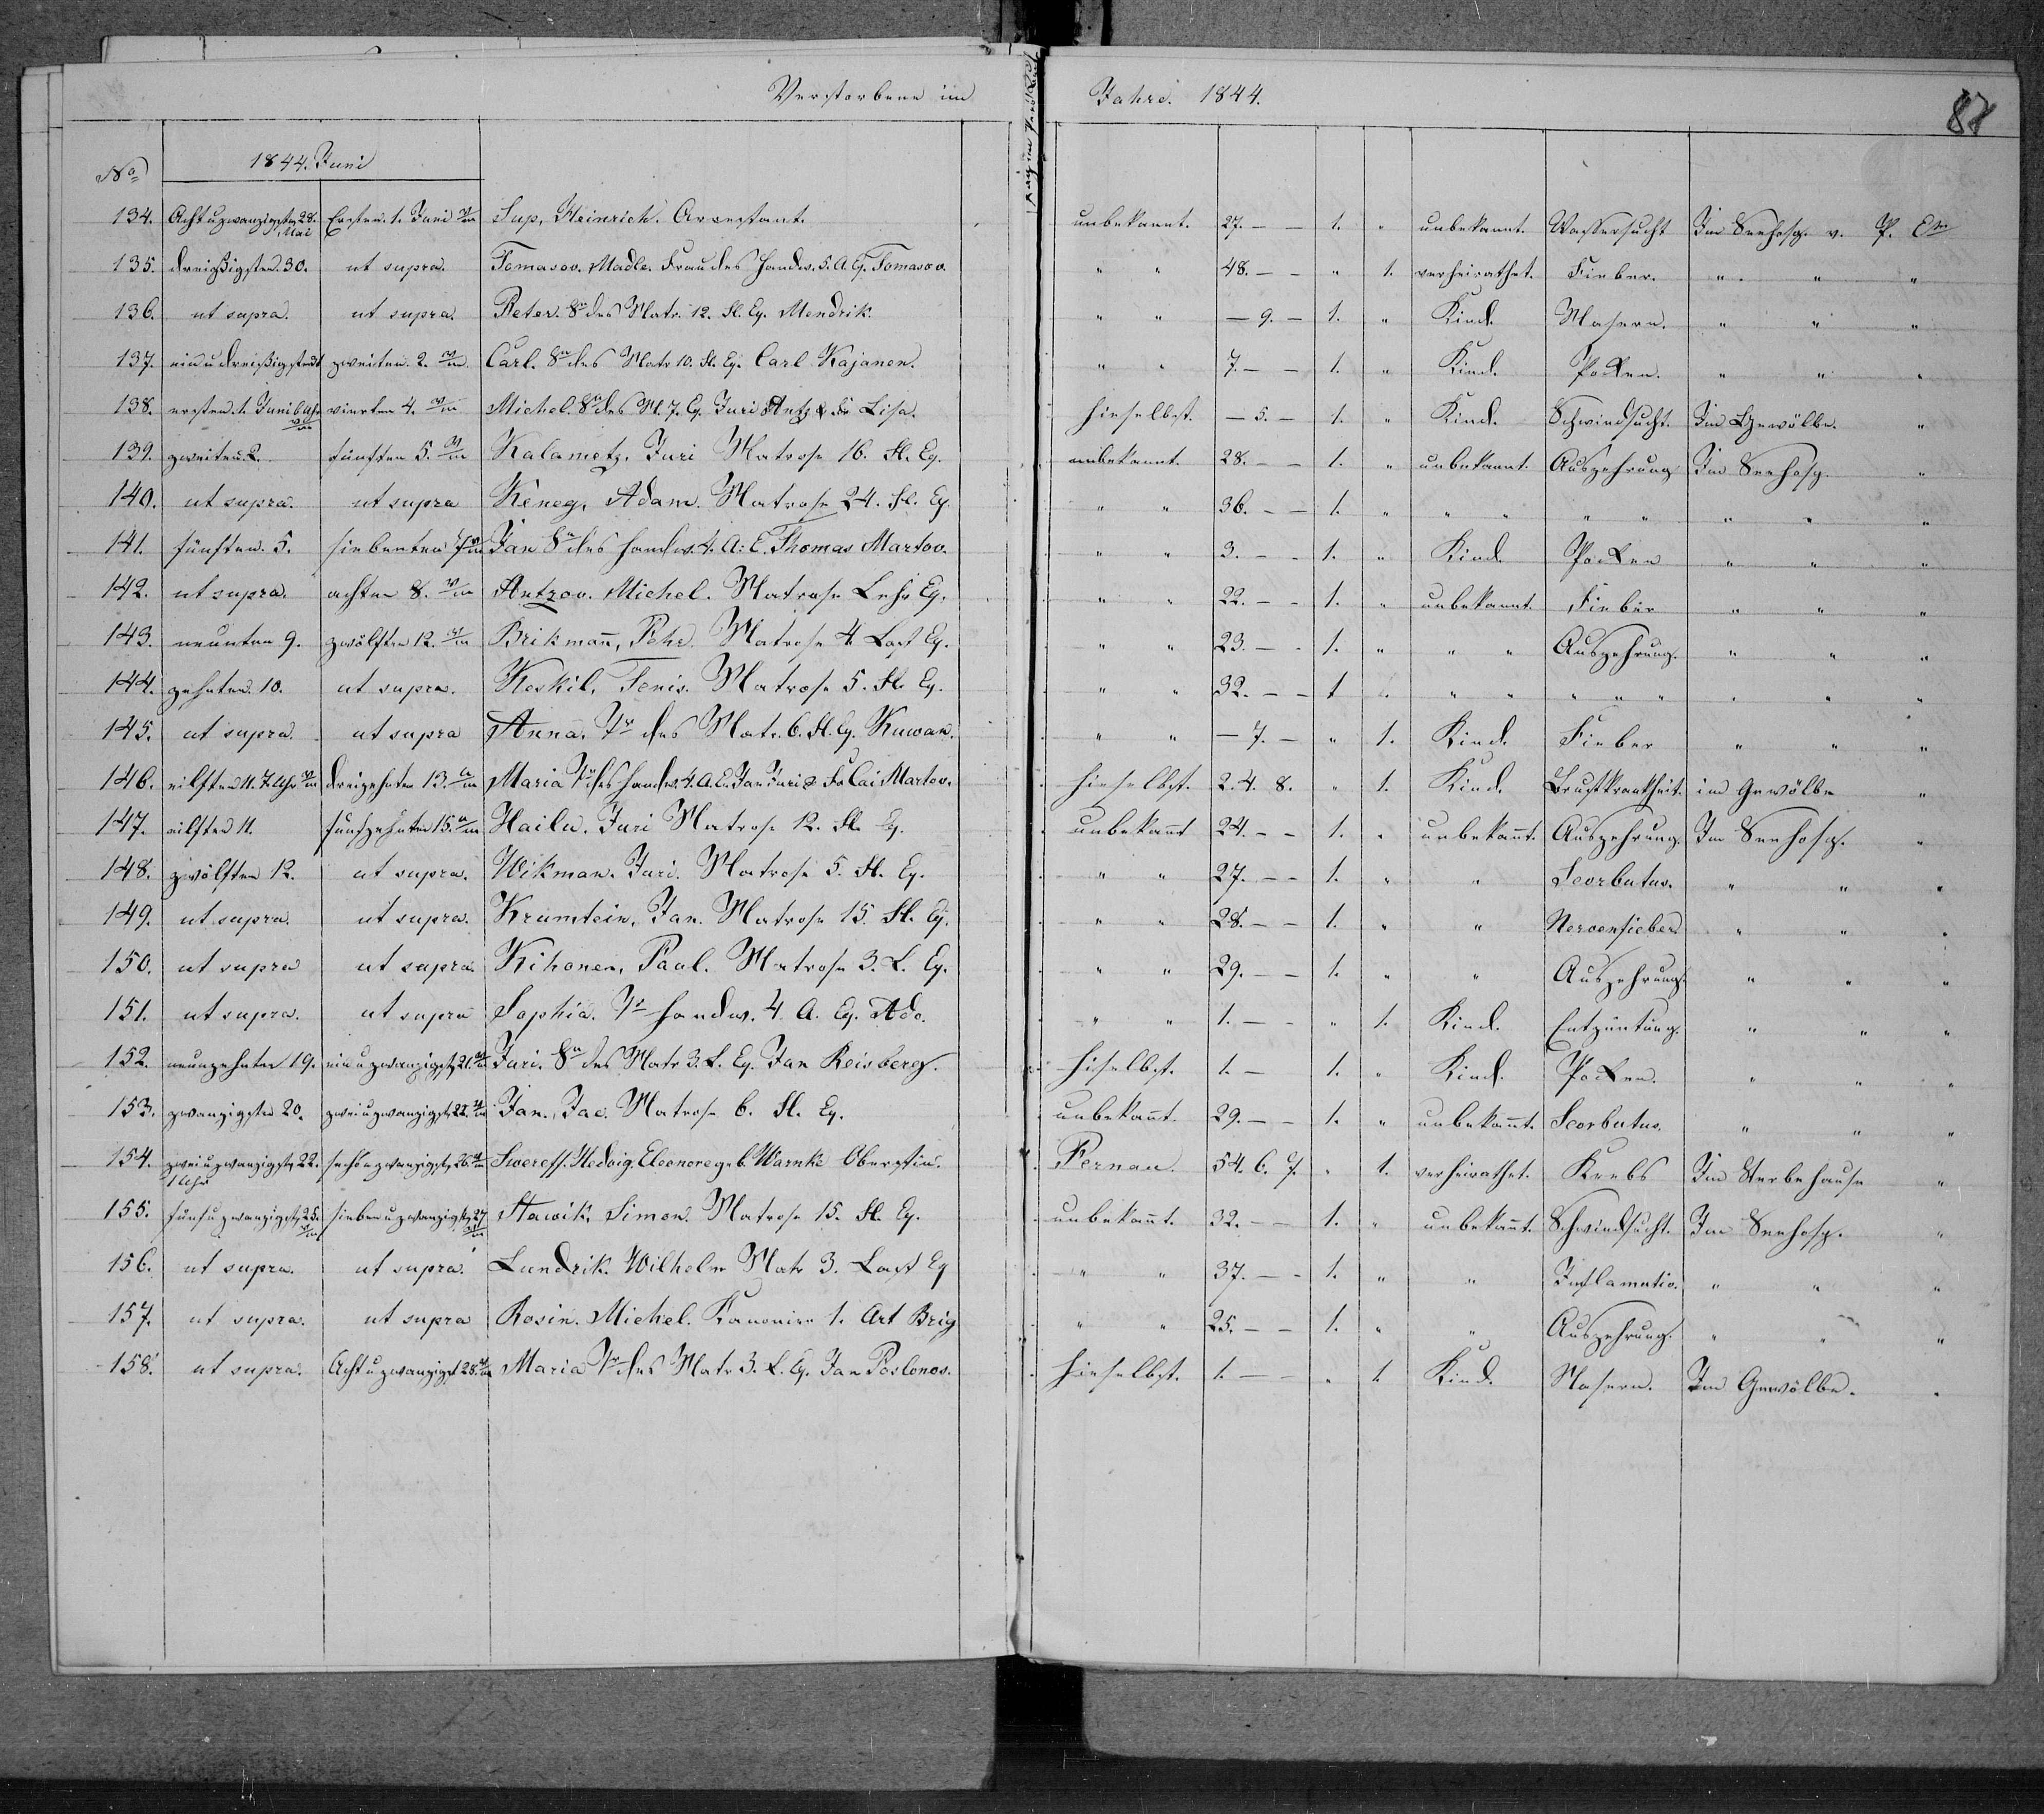 Verstorbene im Jahre. 1844. 87
No 1844. Juni
134. Acht u zwanzigsten 28. Mai Ersten. 1. Juni Sup, Heinrich. Arrestant. unbekannt. 27. – – 1. " unbekannt. Wassersucht Im Seehosp. v. P.
135. dreißigsten. 30. ut supra. Tomasov. Madle. Frau des Handw. 5. A. Eq. Tomasov. " " 48. – – " 1. verheirathet. Fieber. " " "
136. ut supra. ut supra. Peter. Sn des Matr. 12. Fl. Eq. Mendrik. " " – 9. – 1. " Kind. Masern. " " "
137. ein u dreißigsten 31 zweiten. 2. Carl. Sn des Matr 10. Fl. Eq. Carl Kajanen. " " 7. – – 1. " Kind. Pocken. " " "
138. ersten. 1. Juni 6 Uhr vierten 4. Michel. Sn des M. 7. Eq. Juri Antz & Fr Lisa. hieselbst. – 5. – 1. " Kind. Schwindsucht. Im Gewölbe. "
139. zweiten. 2. fünften 5. Kalametz, Juri Matrose 16. Fl. Eq. unbekannt. 28. – – 1. " unbekannt. Auszehrung Im Seehosp. "
140. ut supra. ut supra Keneg, Adam. Matrose 24. Fl. Eq. " " 36. – – 1. " " " " " " " "
141. fünften. 5. siebenten 7 Jan Sn des Handw. 4. A. E. Thomas Martov. " " 3. – – 1. " Kind Pocken " " "
142. ut supra. achten 8. Antzov. Michel. Matrose Lehr Eq. " " 22. – – 1. " unbekannt Fieber " " "
143. neunten 9. zwölften 12. Brikmann, Pehr. Matrose 4 Last Eq. " " 23. – – 1. " " " Auszehrung. " " "
144. zehnten. 10. ut supra. Keskil, Tenis. Matrose 5. Fl. Eq. " " 32. – – 1 " " " " " " " " "
145. ut supra. ut supra Anna. Tr des Matr. 6. Fl. Eq. Kuwan. " " – 7. – " 1. Kind. Fieber " " "
146. eilften 11. 7. Uhr dreizehnten 13. Maria Tr des Handw. 4. A. E. Jan Juri & Fr Cai Martov. hieselbst. 2. 4. 8. " 1. Kind. Brustkrankheit. im Gewölbe "
147. eilften 11. fünfzehnten 15. Haila. Juri Matrose 12. Fl. Eq. unbekannt 24. – – 1. " unbekannt. Auszehrung. Im Seehosp. "
148. zwölften 12. ut supra. Wikman. Juri. Matrose 5. Fl. Eq. " " 27. – – 1. " " Scorbutus. " " "
149. ut supra. ut supra. Krumtein, Jan. Matrose 15. Fl. Eq. " " 28. – – 1. " " Nervenfieber " " "
150. ut supra ut supra. Kihonen, Paul. Matrose 3. L. Eq. " " 29. – – 1. " " Auszehrung. " " "
151. ut supra. ut supra Sophia. Tr Handw. 4. A. Eq. Ado. " " 1. – – " 1. Kind. Entzüntung. " " "
152. neunzehnten 19. ein u zwanzigst 21. Juri. Sn des Matr 3. L. Eq. Jan Reisberg. hieselbst. 1. – 1. " Kind. Pocken. " " "
153. zwanzigsten 20. zwei u zwanzigst 22. Jan. Jac. Matrose 6. Fl. Eq. unbekannt. 29. – – 1. " unbekannt. Scorbutus. " " "
154. zwei u zwanzigst 22. 1 Uhr sechs u zwanzigst 26. Svereff. Hedvig Eleonore geb. Warnke Oberstin. Pernau. 54. 6. 7. " 1. verheirathet. Krebs Im Sterbehause "
155. fünf u zwanzigst 25. sieben u zwanzigst 27 Stawik, Simon. Matrose 15. Fl. Eq. unbekannt. 32. – – 1. " unbekannt. Schwindsucht. Im Seehosp. "
156. ut supra. ut supra. Lundrik. Wilhelm Matr 3. Last Eq " " 37. – – 1. " " Inflamatio. " " "
157. ut supra. ut supra Rosin. Michel. Kanonier 1. Art Brig " " 25. – – 1. " " Auszehrung. " " "
158. ut supra. Acht u zwanzigst 28. Maria Tr des Matr 3. L. Eq. Jan Poslonos. hieselbst. 1. – – " 1. Kind. Masern. Im Gewölbe. "